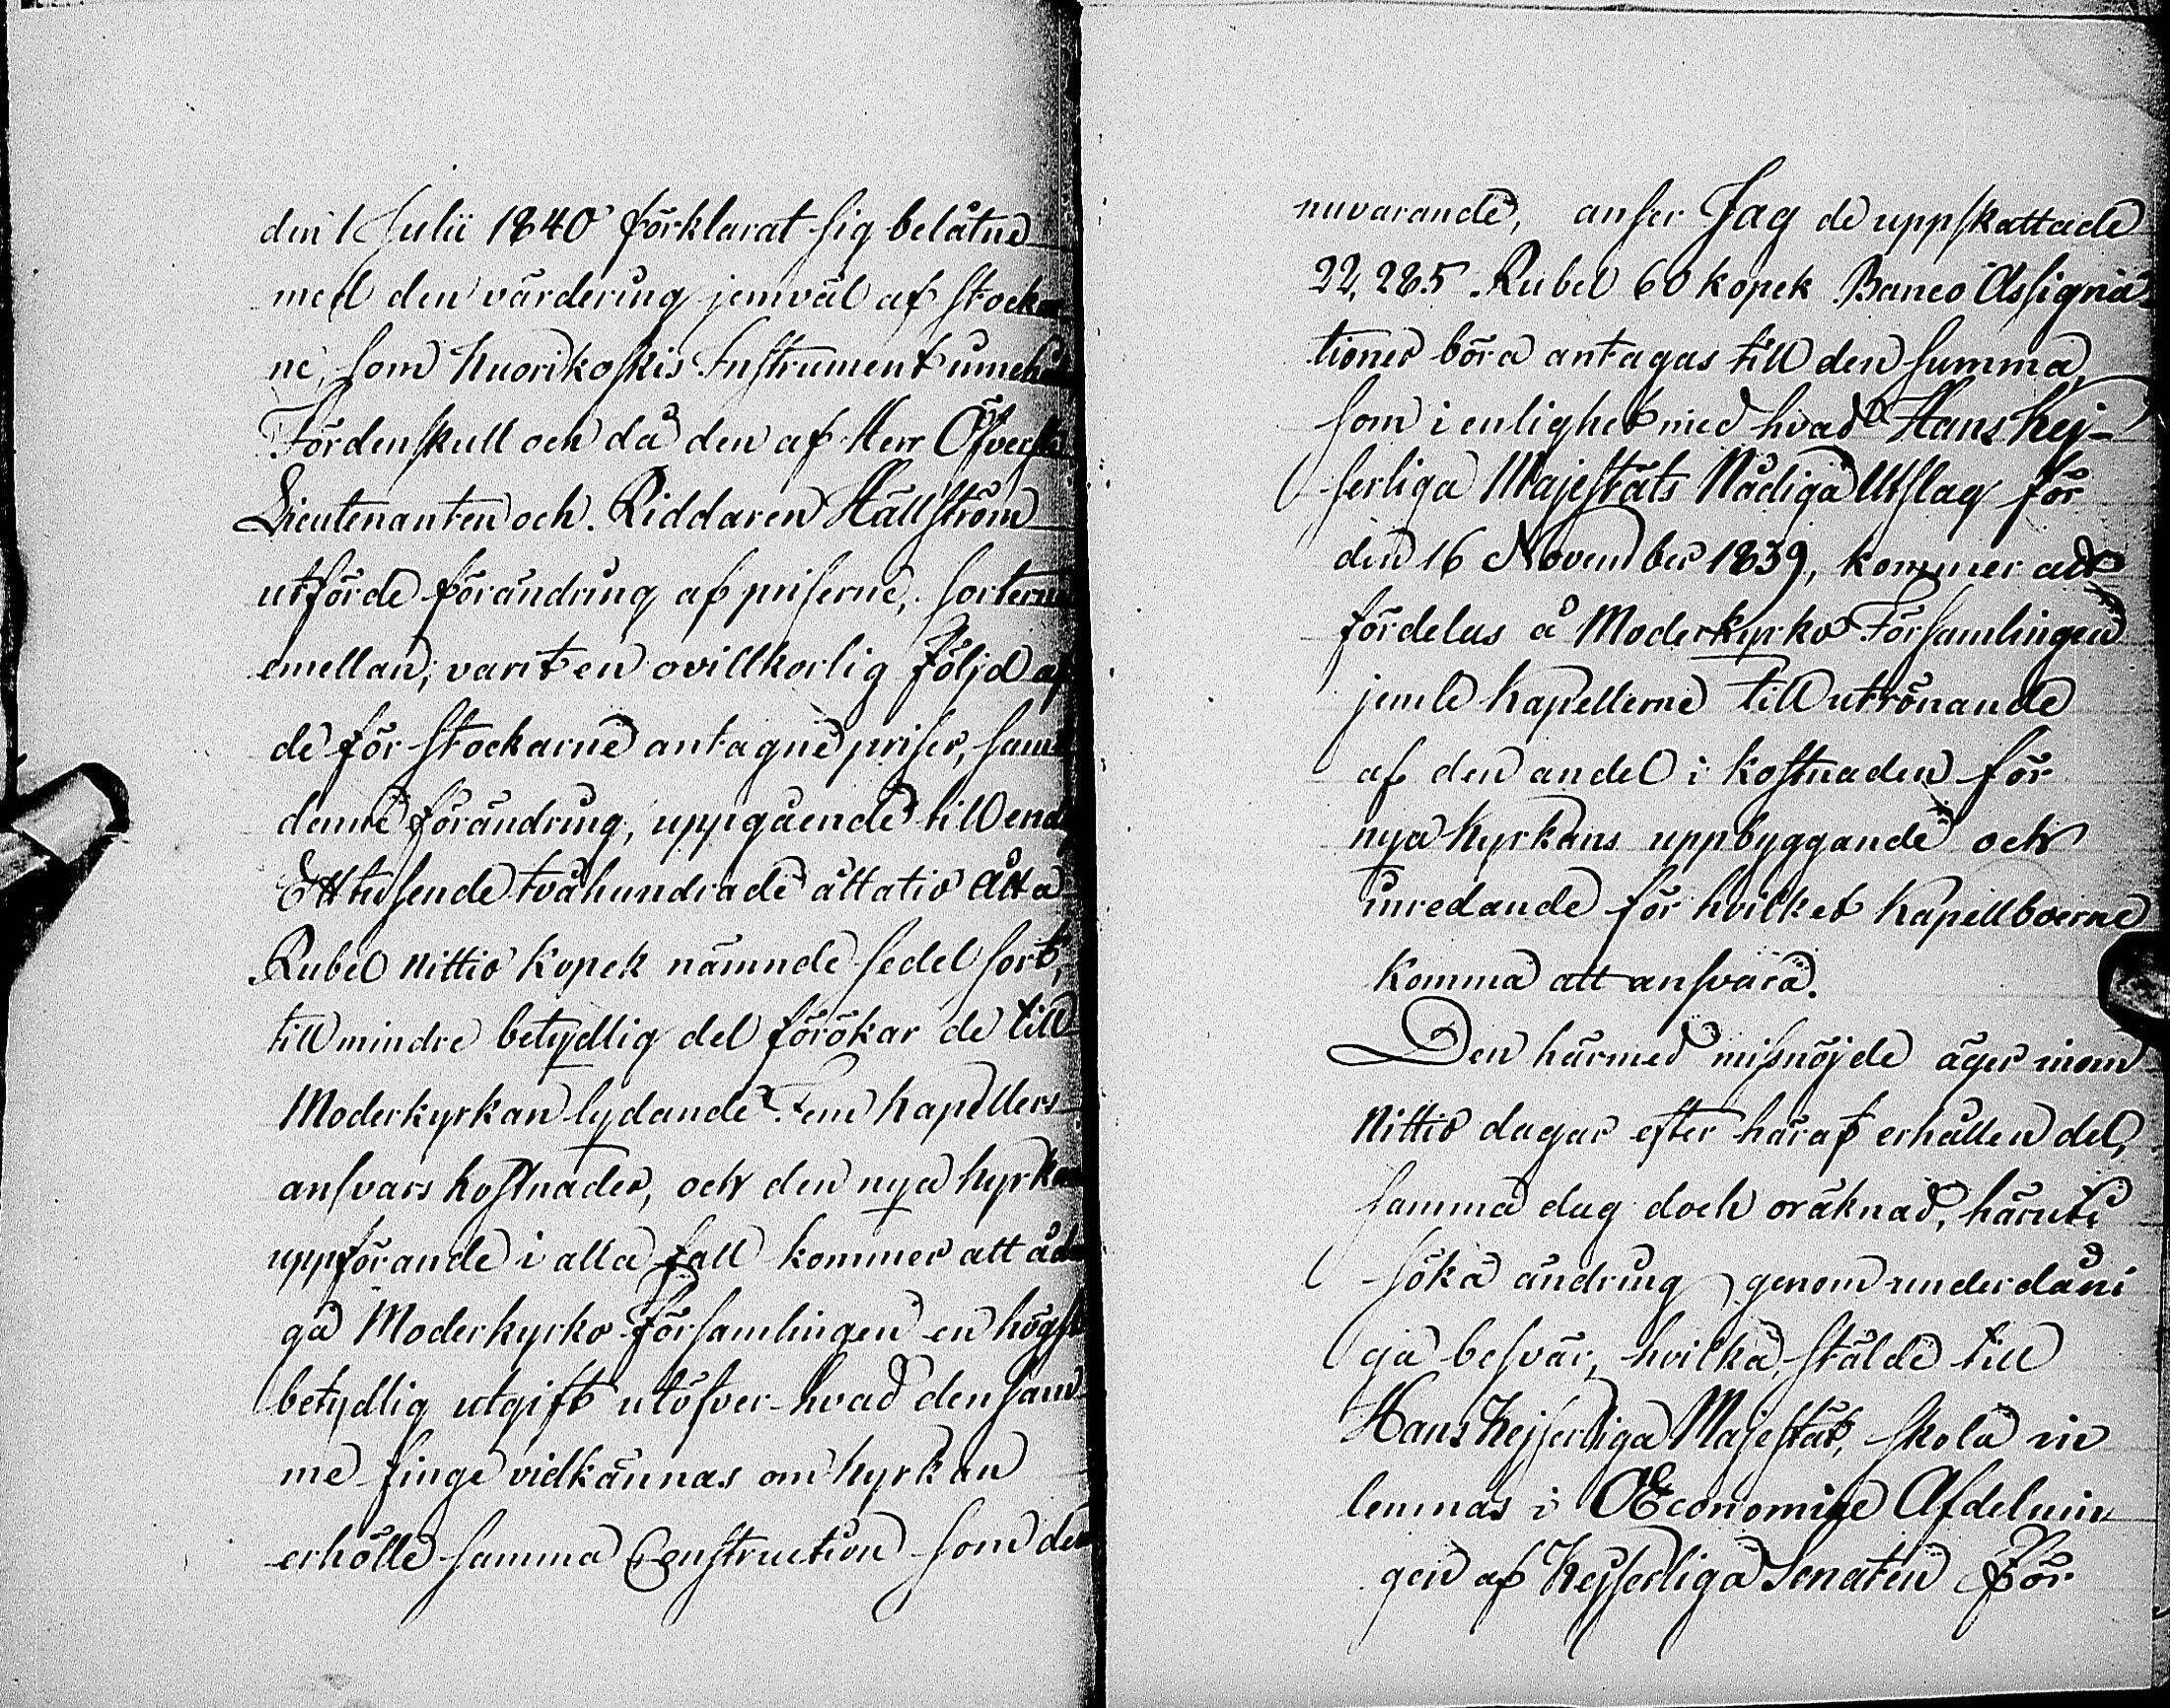 den 1 Julii 1840 förklarat sig belåtne
med den värdering jemväl af stockar
ne, som Kuorikoskis Instrument innehåll
Fördenskull och då den af Herr Öfverste
Lieutenanten och Riddaren Hällström
utförde förändring af priserne, sorterne
emellan, varit en ovillkorlig följd af
de för stockarne antagne priser, samt
denne förändring, uppgående till endast
Ett tusende tvåhundrade åttatio åtta
Rubel nittio kopek nämnde sedel sort,
till mindre betydlig del förökar de till
Moderkyrkan lydande Fem Kapellers
ansvars kostnader, och den nya kyrkans
uppförande i alla fall kommer att ådra
ga Moderkyrko församlingen en högst
betydlig utgift utöfver hvad den sam
me finge vidkännas om kyrkan
erhölle samma Construction som den
nuvarande, anser Jag de uppskattade
22,285 Rubel 60 kopek Banco Assigna
tioner böra antagas till den summa,
som i enlighet med hvad Hans Kej-
serliga Majestäts Nådiga Utslag för
den 16 November 1839, kommer att
fördelas å Moderkyrko Församlingen
jemte Kapellerne till utrönande
af den andel i kostnaden för
nya Kyrkans uppbyggande och
inredande för hvilket Kapellboerne
komma att ansvara.
Den härmed missnöjde äger inom
Nittio dagar efter häraf erhållen del,
samma dag doch oräknad, häruti
söka ändring genom underdåni
ga besvär, hvilka, stälde till
Hans Kejserliga Majestät, skola in
lemnas i Œconomiæ Afdelnin
gen af Kejserliga Senaten för